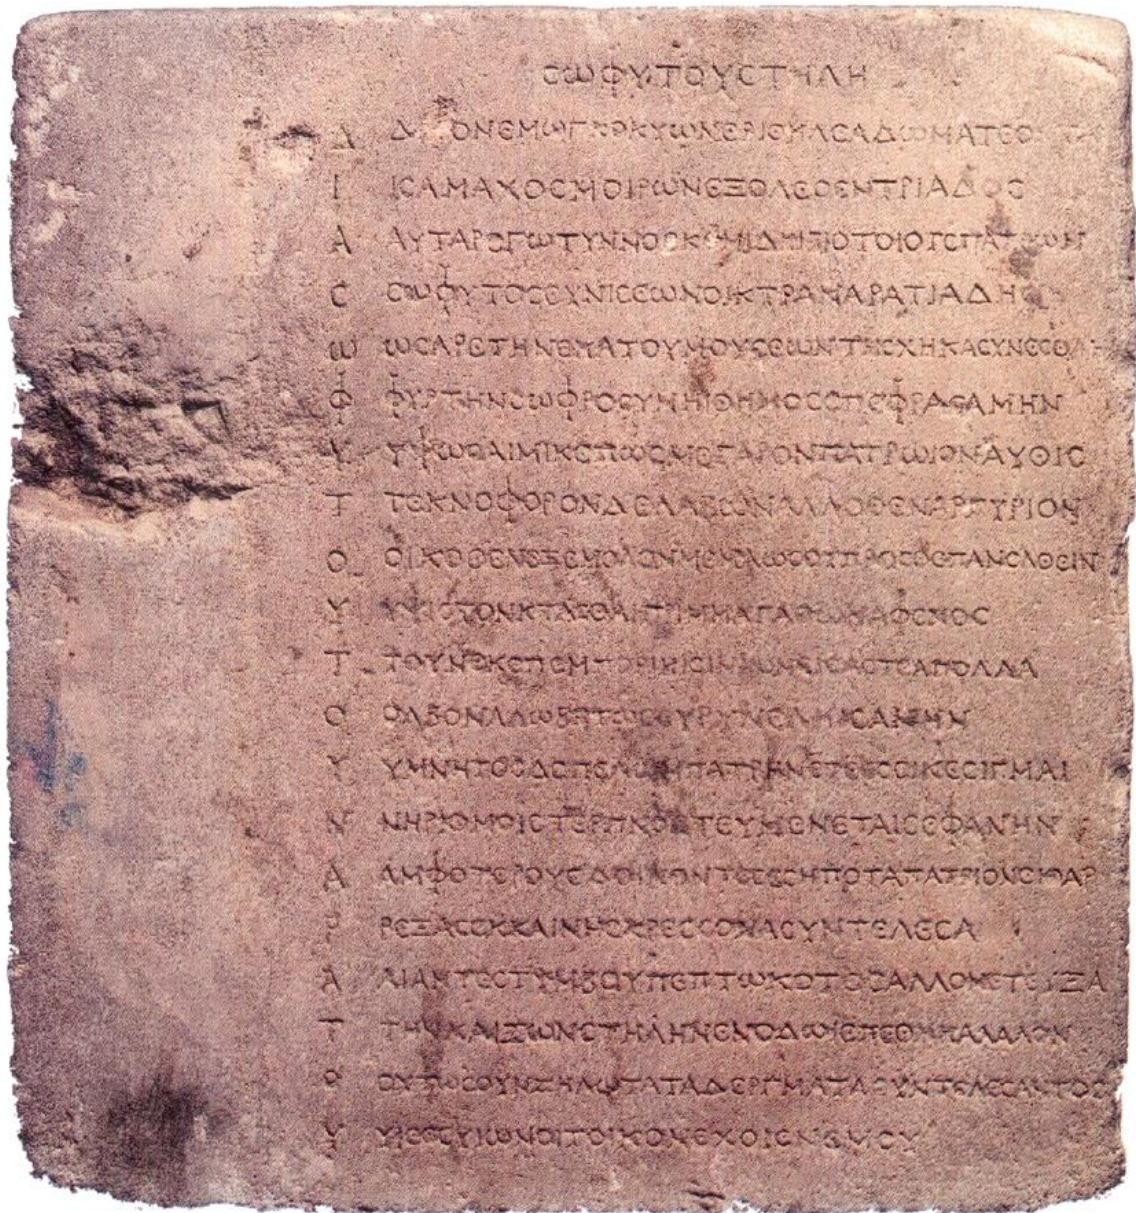 ΣΩΦΥΤΟΥΣΤΗΛΗ
Δ ΔΗΡΟΝΕΜΩΓΚΟΚΥΩΝΕΡΙΘΗΛΕΑΔΩΜΑΤΕΟΝΤΑ
Ι ΙΣΑΜΑΧΟΣΜΟΙΡΩΝΕΞΟΛΕΣΕΝΤΡΙΑΔΟΣ
Α ΑΥΤΑΡΕΓΩΤΥΝΝΟΣΚΟΜΙΔΗΙΒΙΟΤΟΙΟΤΕΠΑΤΡΩΝ
Σ ΣΩΦΥΤΟΣΕΥΝΙΣΕΩΝΟΙΚΤΡΑΝΑΡΑΤΙΑΔΗΣ
Ω ΩΣΑΡΕΤΗΝΕΚΑΤΟΥΜΟΥΣΕΩΝΤΗΣΧΗΚΑΣΥΝΕΣΘΛΗΙ
Φ ΦΥΡΤΗΝΣΩΦΡΟΣΥΝΗΙΤΗΜΟΣΕΠΕΦΡΑΣΑΜΗΝ
Υ ΥΨΩΣΑΙΜΙΚΕΠΩΣΜΕΓΑΡΟΝΠΑΤΡΩΙΟΝΑΥΘΙΣ
Τ ΤΕΚΝΟΦΟΡΟΝΔΕΛΑΒΩΝΑΛΛΟΘΕΝΑΡΓΥΡΙΟΝ
Ο ΟΙΚΟΘΕΝΕΞΕΜΟΛΟΝΜΕΜΑΩΣΟΥΠΡΟΣΘΕΠΑΝΕΛΘΕΙΝ
Υ ΥΨΙΣΤΟΝΚΤΑΣΘΑΙΠΡΙΜΜΑΓΑΘΩΝΑΦΕΝΟΣ
Τ ΤΟΥΝΕΚΕΠΕΜΠΟΡΙΗΙΣΙΝΙΩΝΕΙΣΑΣΤΕΑΠΟΛΛΑ
Ο ΟΛΒΟΝΑΛΩΒΗΤΩΣΕΥΡΥΝΕΛΗΙΣΑΜΗΝ
Υ ΥΜΝΗΤΟΣΔΕΠΕΛΩΝΠΑΤΡΗΝΕΤΕΕΣΣΙΝΕΣΙΓΜΑΙ
Ν ΝΗΡΙΘΜΟΙΣΤΕΡΠΝΟΣΤΕΥΜΕΝΕΤΑΙΣΕΦΑΝΗΝ
Α ΑΜΦΟΤΕΡΟΥΣΔΟΙΚΟΝΤΕΣΕΣΗΠΟΤΑΠΑΤΡΙΟΝΕΙΘΑΡ
Ρ ΡΕΞΑΣΕΚΚΑΙΝΗΣΚΡΕΣΣΟΝΑΣΥΝΤΕΛΕΣΑ
Α ΑΙΑΝΤΕΣΤΥΜΒΟΥΠΕΠΤΩΚΟΤΟΣΑΛΛΟΝΕΤΕΥΞΑ
Τ ΤΗΝΚΑΙΖΩΝΣΤΗΛΗΝΕΝΟΔΩΙΕΠΕΘΗΚΑΛΑΛΟΝ
Ο ΟΥΤΩΣΟΥΝΖΗΛΩΤΑΤΑΔΕΡΓΜΑΤΑΣΥΝΤΕΛΕΣΑΝΤΟΣ
Υ ΥΙΕΕΣΥΙΩΝΟΙΤΟΙΚΟΝΕΧΟΙΕΝΕΜΟΥ